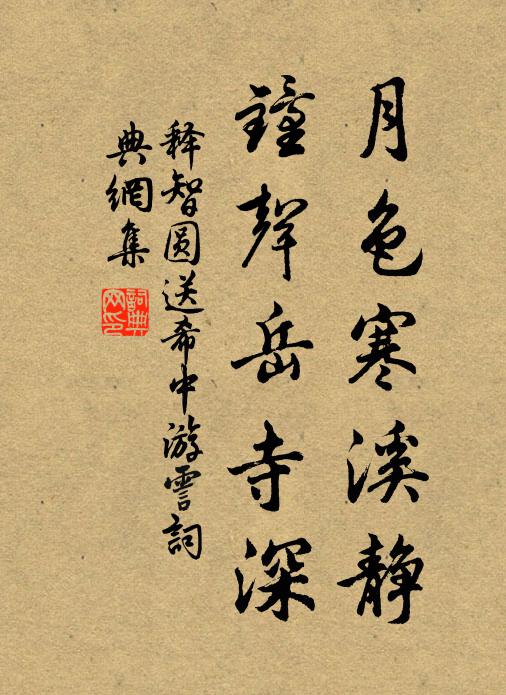 月色寒溪静
鐘聲岳寺深
释智圆送希中游霅詞
典網集
詞典
网印